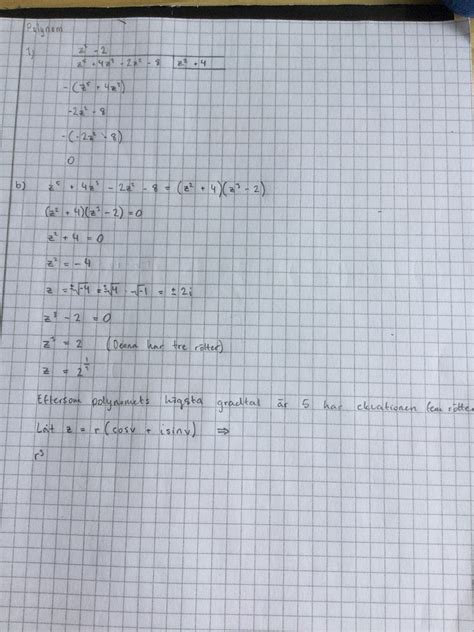 Polynom
1) z³ - 2
z⁵ + 4z³ - 2z² - 8 | z² + 4
-(z⁵ + 4z³)
-2z² - 8
-(-2z² - 8)
0
b) z⁵ + 4z³ - 2z² - 8 = (z² + 4)(z³ - 2)
(z² + 4)(z³ - 2) = 0
z² + 4 = 0
z² = -4
z = ±√-4 = ±√4 · √-1 = ± 2i
z³ - 2 = 0
z³ = 2 (Denna har tre rötter)
z = 2^(1/3)
Eftersom polynomets högsta gradtal är 5 har ekvationen fem rötter
Låt z = r(cosv + isinv) ⇒
r³